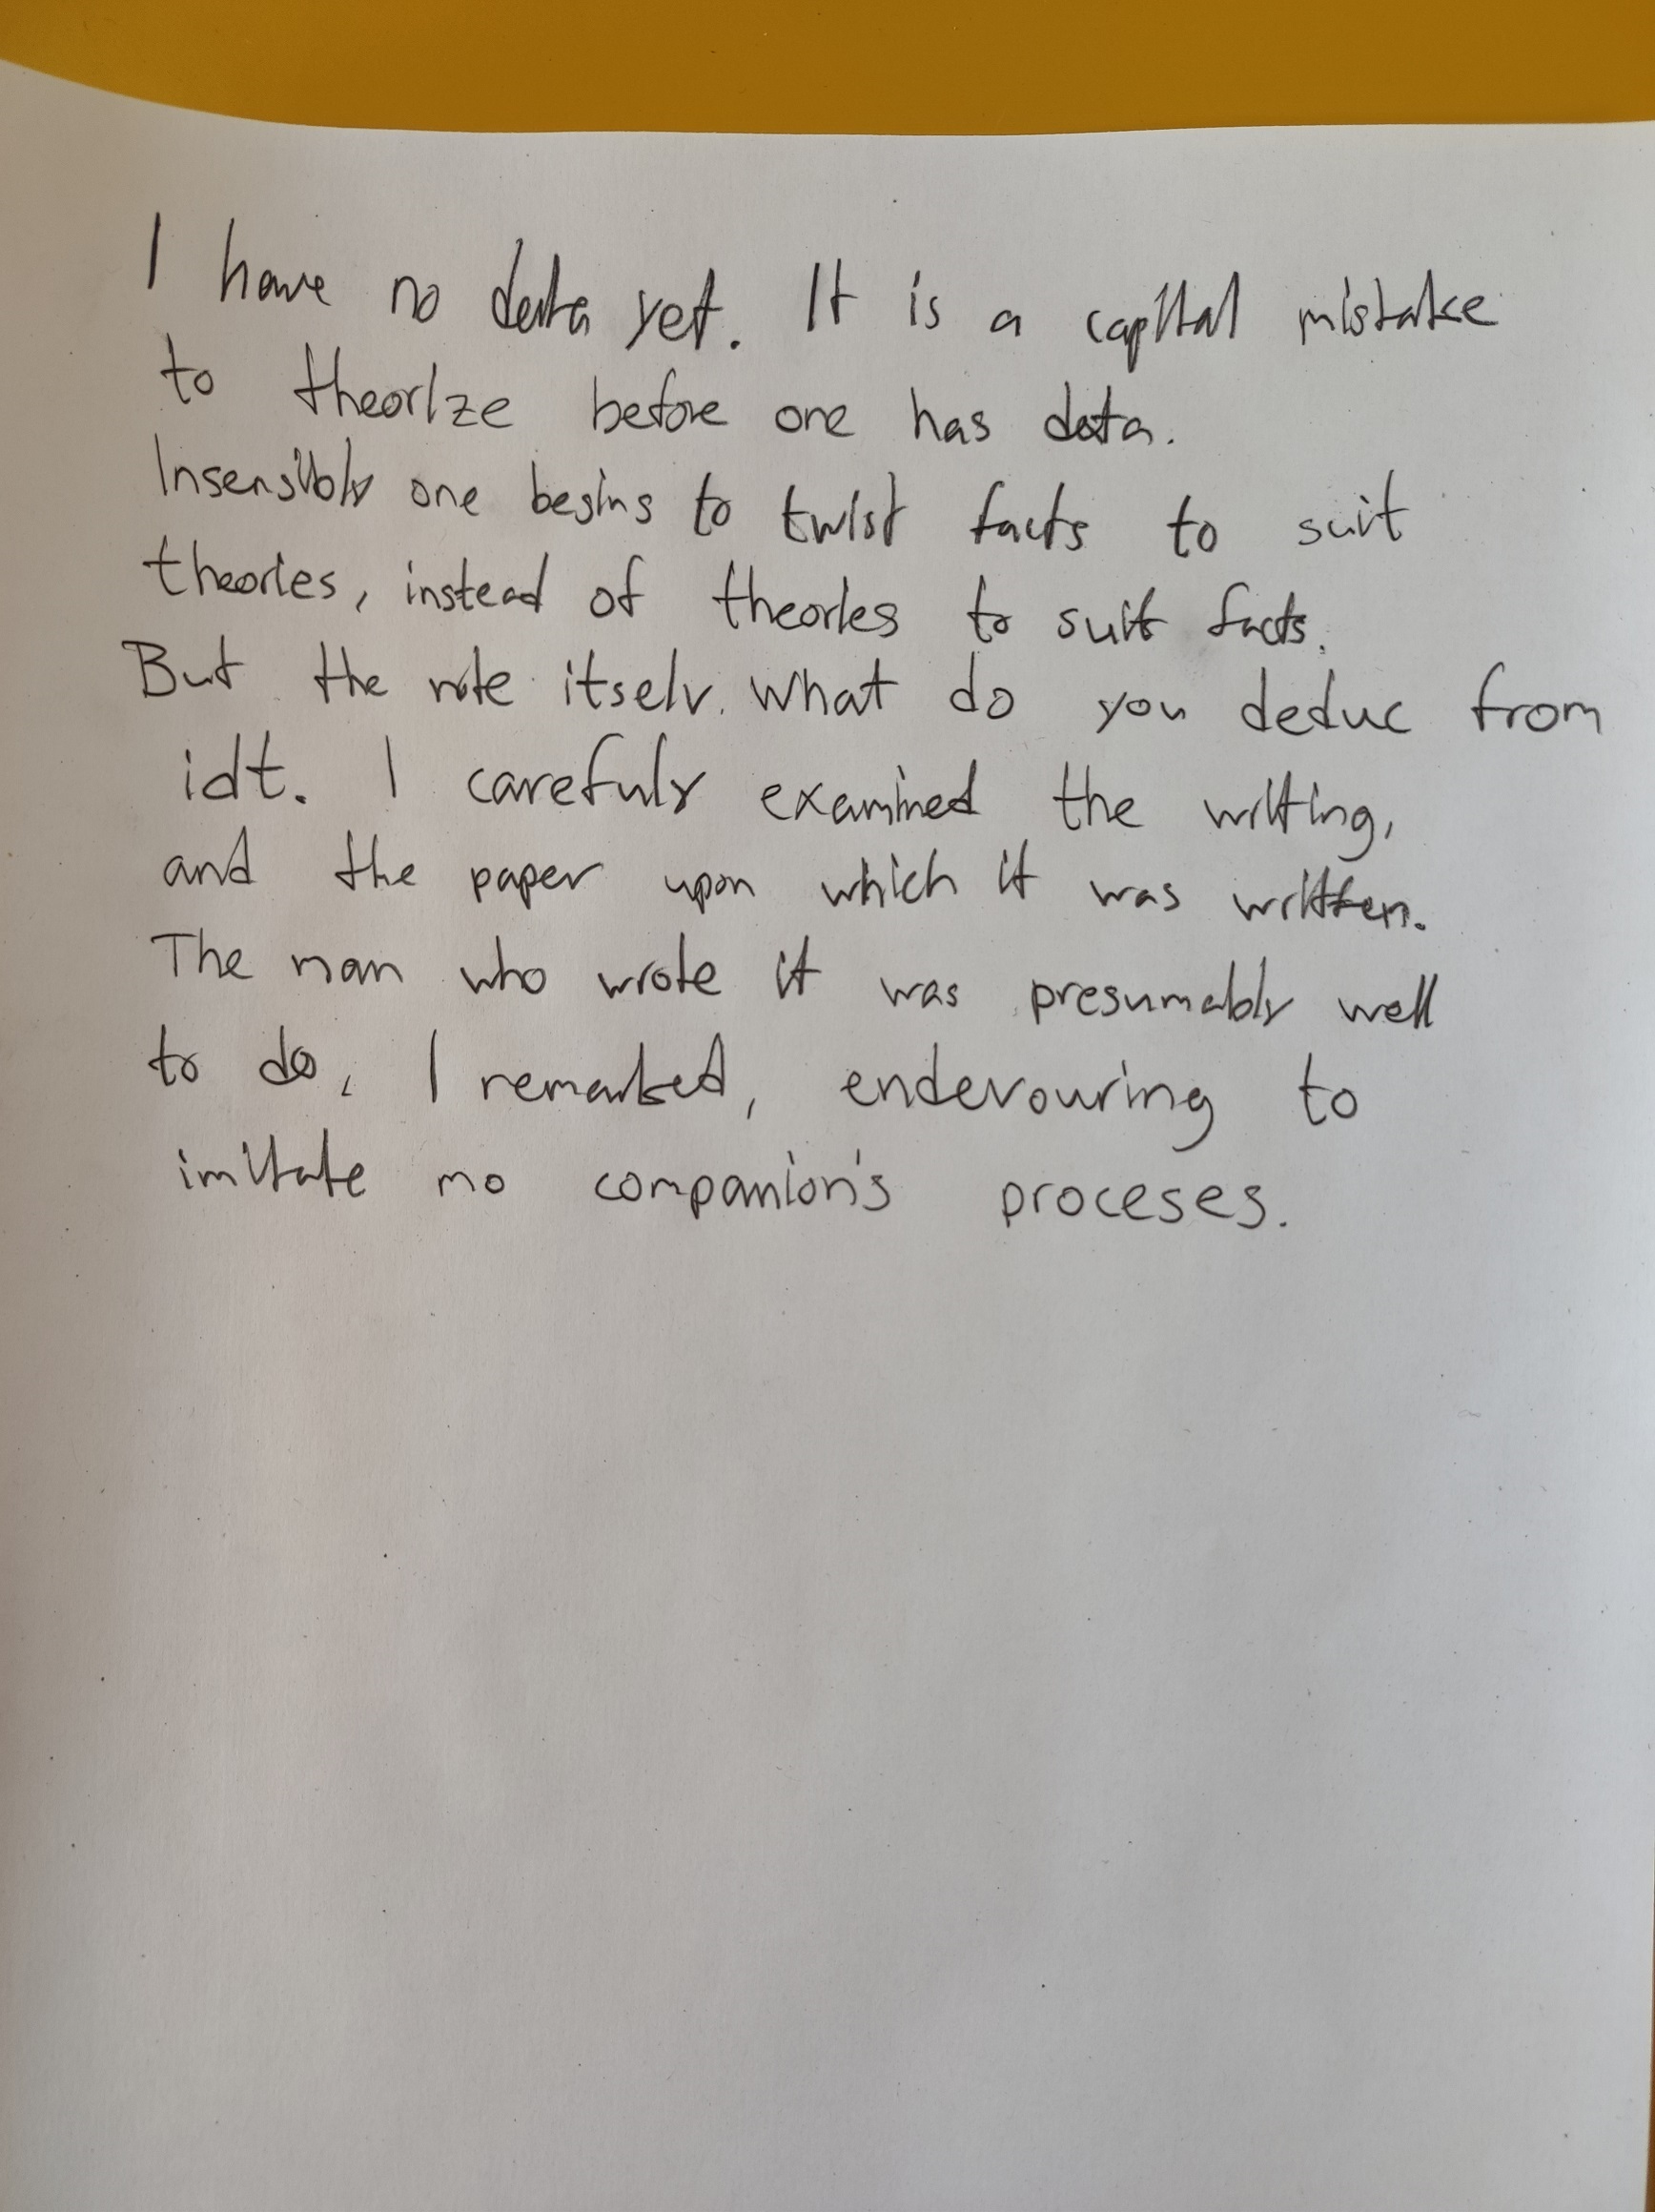 I have no data yet. It is a capital mistake
to theorize before one has data.
Insensibly one begins to twist facts to suit
theories, instead of theories to suit facts.
But the note itselv. What do you deduc from
idt. I carefuly examined the writing,
and the paper upon which it was written.
The man who wrote it was presumably well
to do, I remarked, endevouring to
imitate mo companion's proceses.